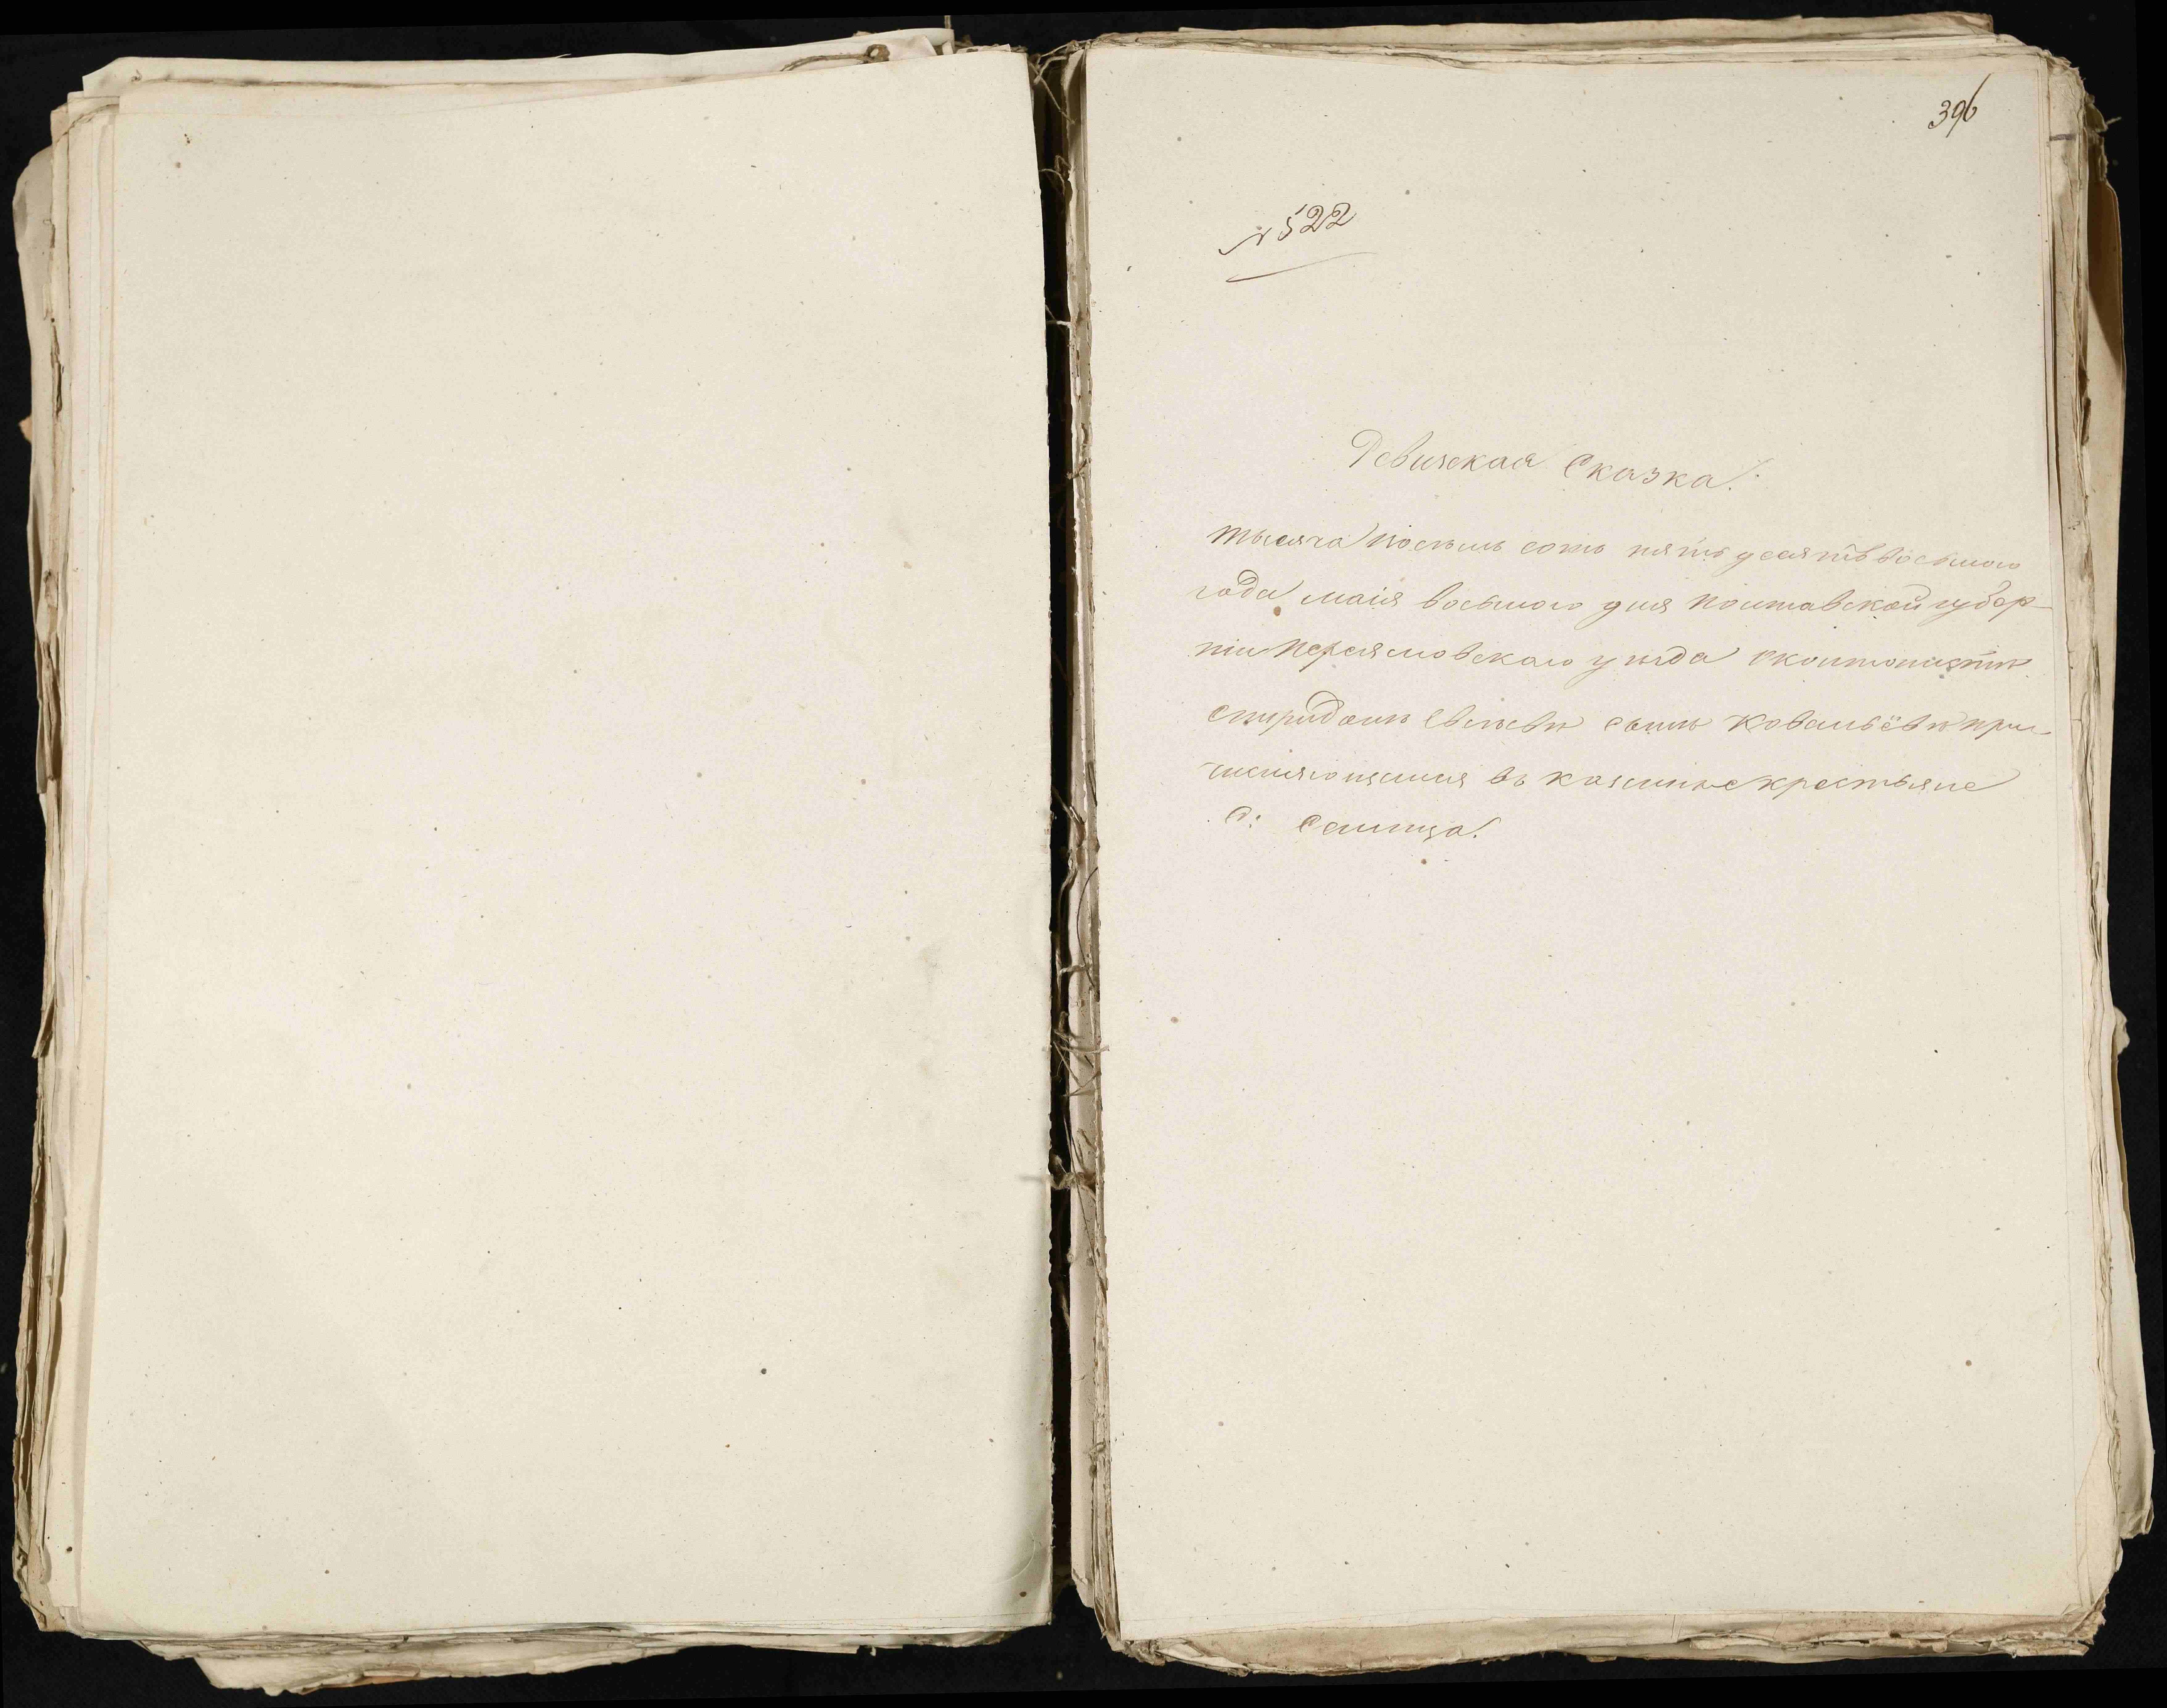 396
№ 522
Ревизская Сказка.
тысяча восемь сотъ пятьдесятъ восьмого
года маія восьмого дня Полтавской губер-
ніи Переясловского уезда
Спиридонъ сынъ Ковалёвъ при-
числяющыйся въ казенные крестьяне
С: